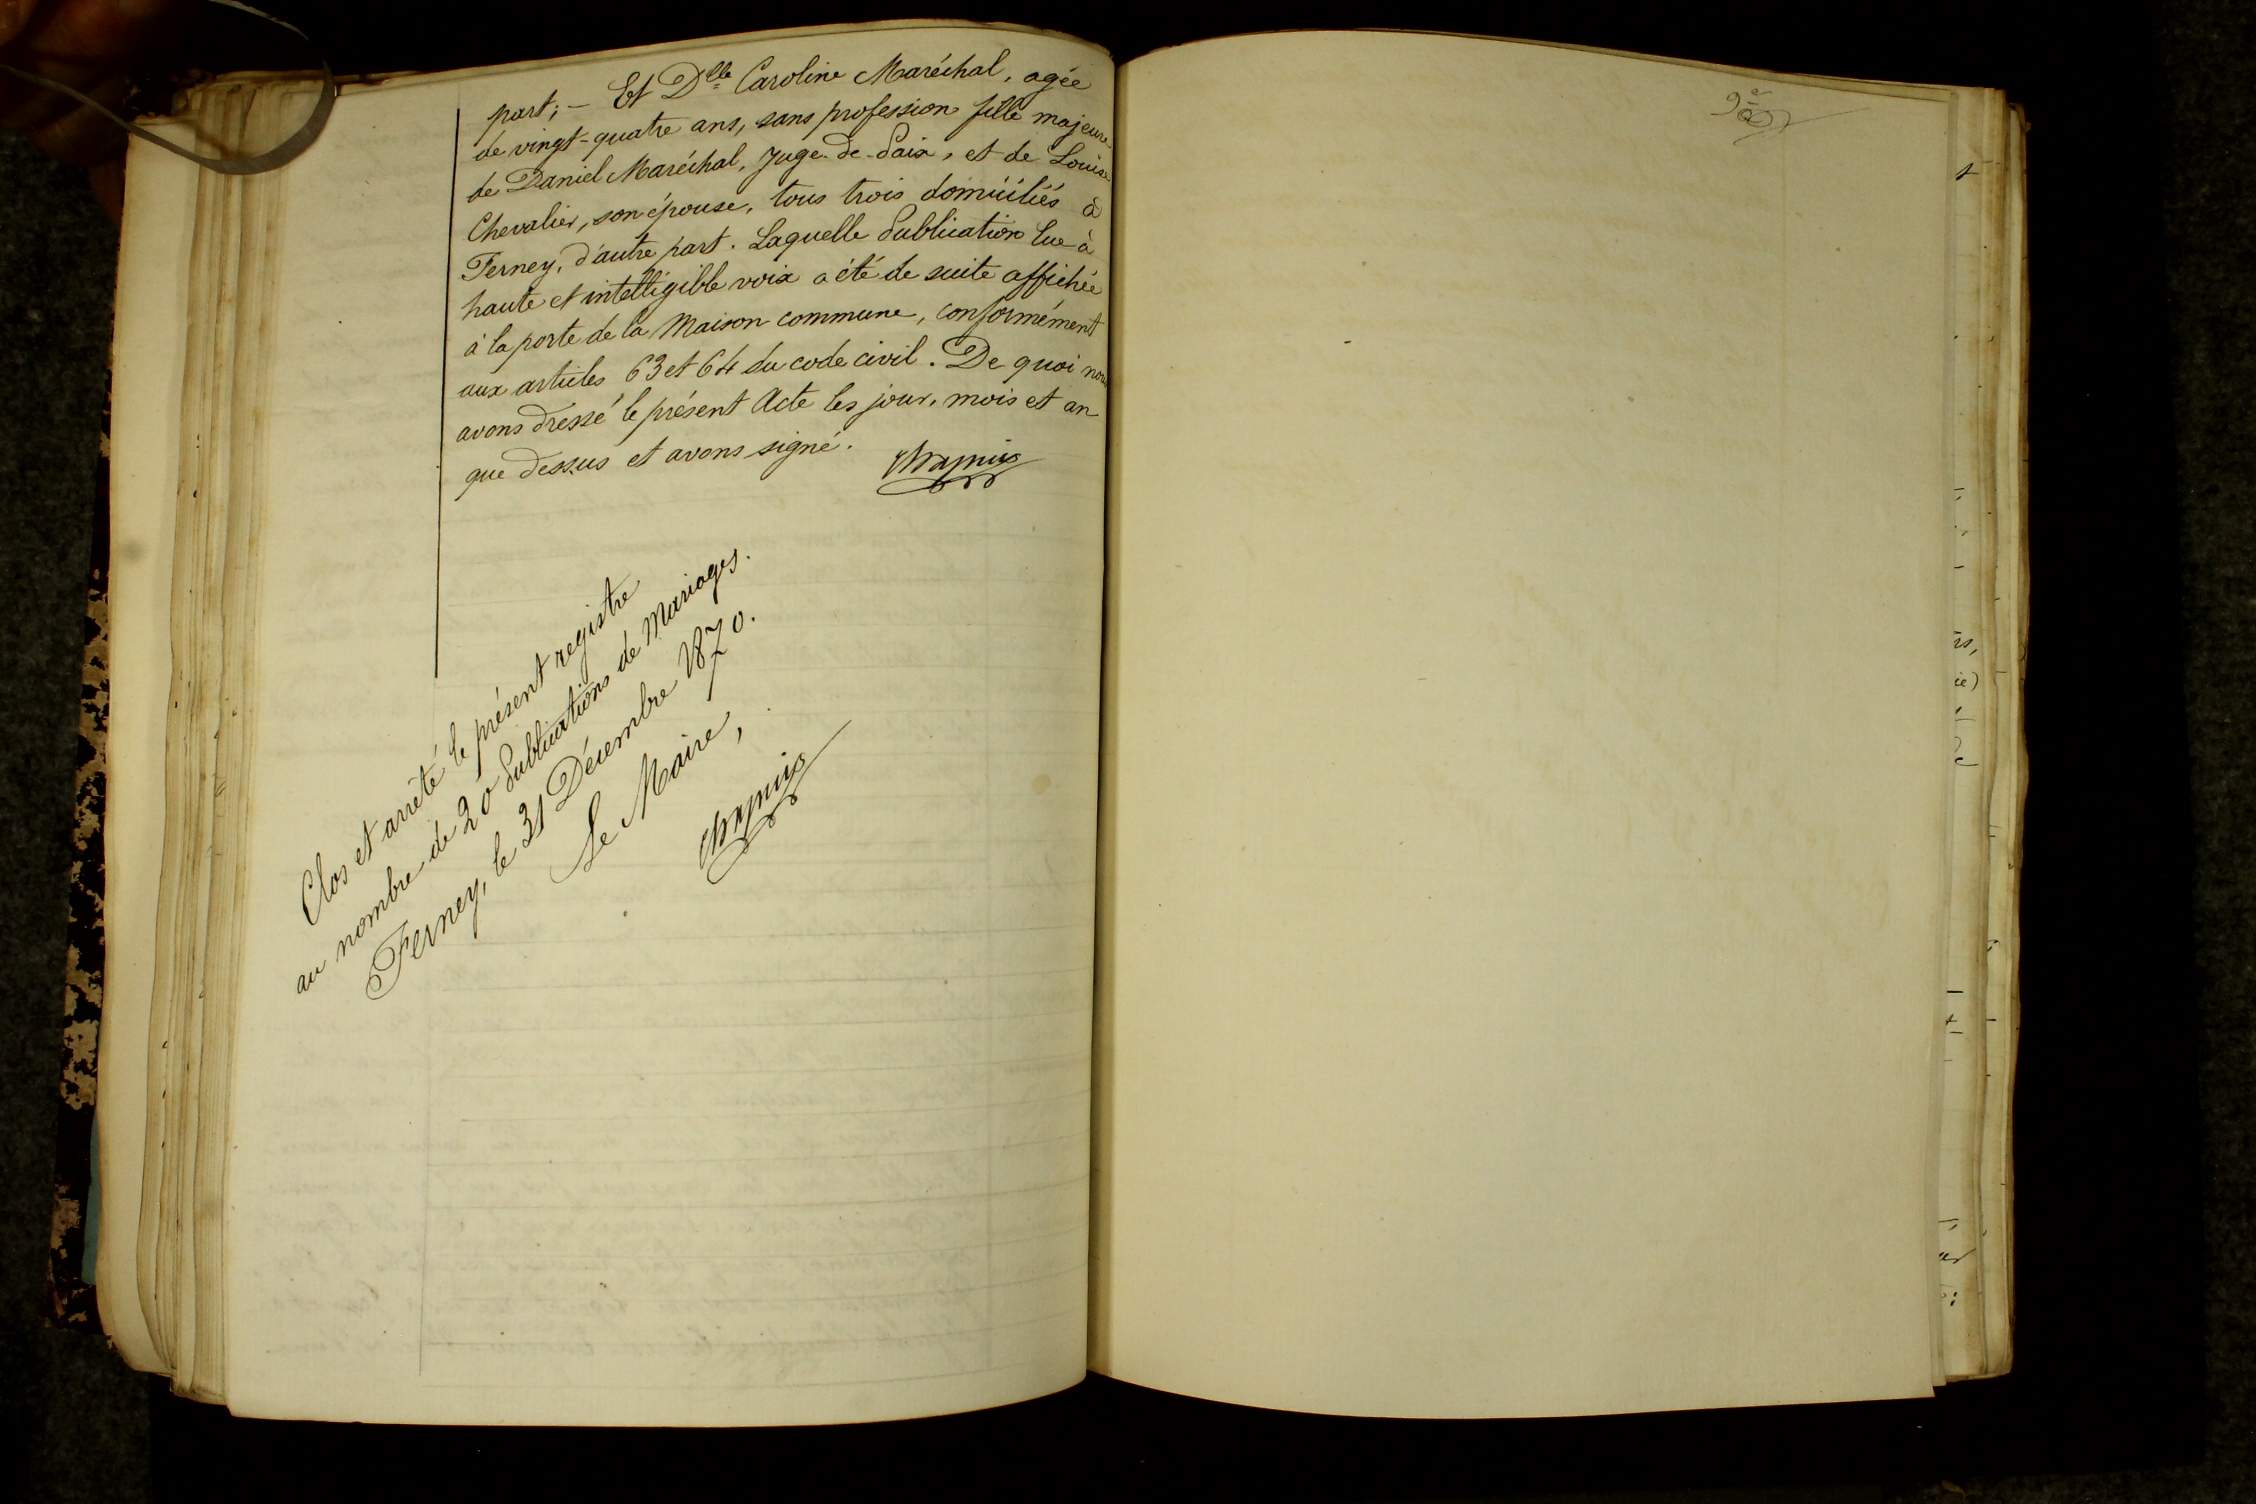 part; — Et Dlle Caroline Maréchal, agée
de vingt-quatre ans, sans profession fille majeure
de Daniel Maréchal, Juge-de-Paix, et de Louise
Chevalier, son épouse, tous trois domiciliés à
Ferney, d'autre part. Laquelle Publication lue à
haute et intelligible voix a été de suite affichée
à la porte de la Maison commune, conformément
aux articles 63 et 64 du code civil. De quoi nous
avons dressé le présent Acte les jour, mois et an
que dessus et avons signé.
Clos et arrêté le présent registre
au nombre de 20 Publications de Mariages.
Ferney, le 31 Décembre 1870.
Le Maire,